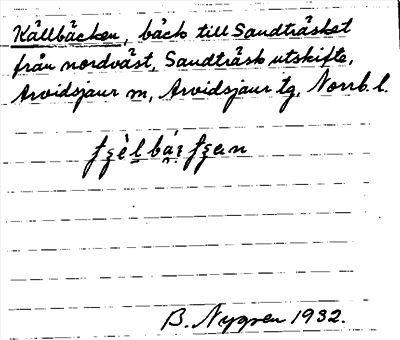 Källbäcken, bäck till Sandträsket
från nordväst, Sandträsk utskifte,
Arvidsjaur sn, Arvidsjaur tg, Norrb. l.
B. Nygren 1932.